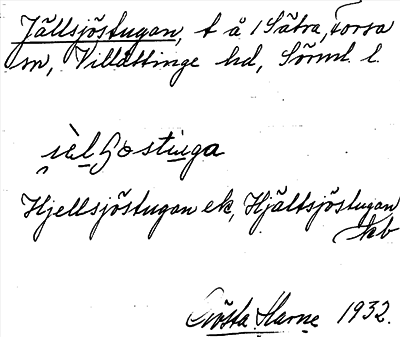 Jällsjöstugan, t å 1 Sätra, Forsa
sn, Villåttinge hd, Sörml. l.
Hjellsjöstugan ek, Hjältsjöstugan
kb
Gösta Harne 1932.